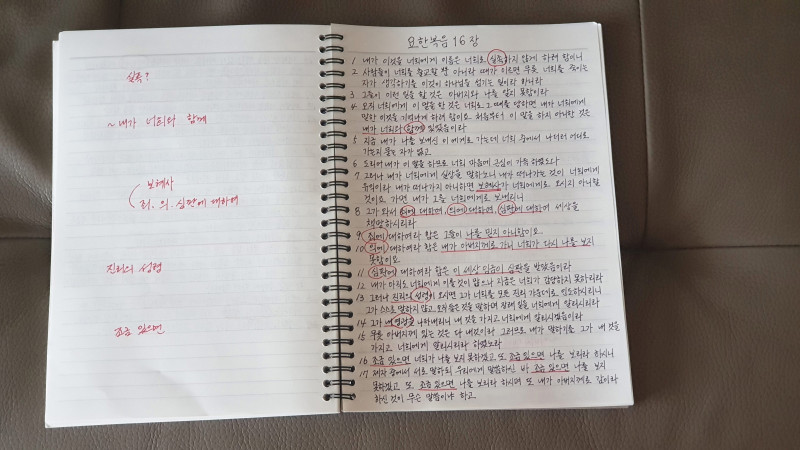 실족?
~ 내가 너희와 함께
보혜사
죄.의.심판에 대하여
진리의 성령
조금 있으면
요한복음 16장
1 내가 이것을 너희에게 이름은 너희로 실족하지 않게 하려 함이니
2 사람들이 너희를 출교할 뿐 아니라 때가 이르면 무릇 너희를 죽이는
자가 생각하기를 이것이 하나님을 섬기는 일이라 하리라
3 그들이 이런 일을 할 것은 아버지와 나를 알지 못함이라
4 오직 너희에게 이 말을 한 것은 너희로 그 때를 당하면 내가 너희에게
말한 이것을 기억나게 하려 함이요 처음부터 이 말을 하지 아니한 것은
내가 너희와 함께 있었음이라
5 지금 내가 나를 보내신 이에게로 가는데 너희 중에서 나더러 어디로
가는지 묻는 자가 없고
6 도리어 내가 이 말을 하므로 너희 마음에 근심이 가득하였도다
7 그러나 내가 너희에게 실상을 말하노니 내가 떠나가는 것이 너희에게
유익이라 내가 떠나가지 아니하면 보혜사가 너희에게로 오시지 아니할
것이요 가면 내가 그를 너희에게로 보내리니
8 그가 와서 죄에 대하여, 의에 대하여, 심판에 대하여 세상을
책망하시리라
9 죄에 대하여라 함은 그들이 나를 믿지 아니함이요
10 의에 대하여라 함은 내가 아버지께로 가니 너희가 다시 나를 보지
못함이요
11 심판에 대하여라 함은 이 세상 임금이 심판을 받았음이라
12 내가 아직도 너희에게 이를 것이 많으나 지금은 너희가 감당하지 못하리라
13 그러나 진리의 성령이 오시면 그가 너희를 모든 진리 가운데로 인도하시리니
그가 스스로 말하지 않고 오직 들은 것을 말하며 장래 일을 너희에게 알리시리라
14 그가 내 영광을 나타내리니 내 것을 가지고 너희에게 알리시겠음이라
15 무릇 아버지께 있는 것은 다 내 것이라 그러므로 내가 말하기를 그가 내 것을
가지고 너희에게 알리시리라 하였노라
16 조금 있으면 너희가 나를 보지 못하겠고 또 조금 있으면 나를 보리라 하시니
17 제자 중에서 서로 말하되 우리에게 말씀하신 바 조금 있으면 나를 보지
못하겠고 또 조금 있으면 나를 보리라 하시며 또 내가 아버지께로 감이라
하신 것이 무슨 말씀이냐 하고